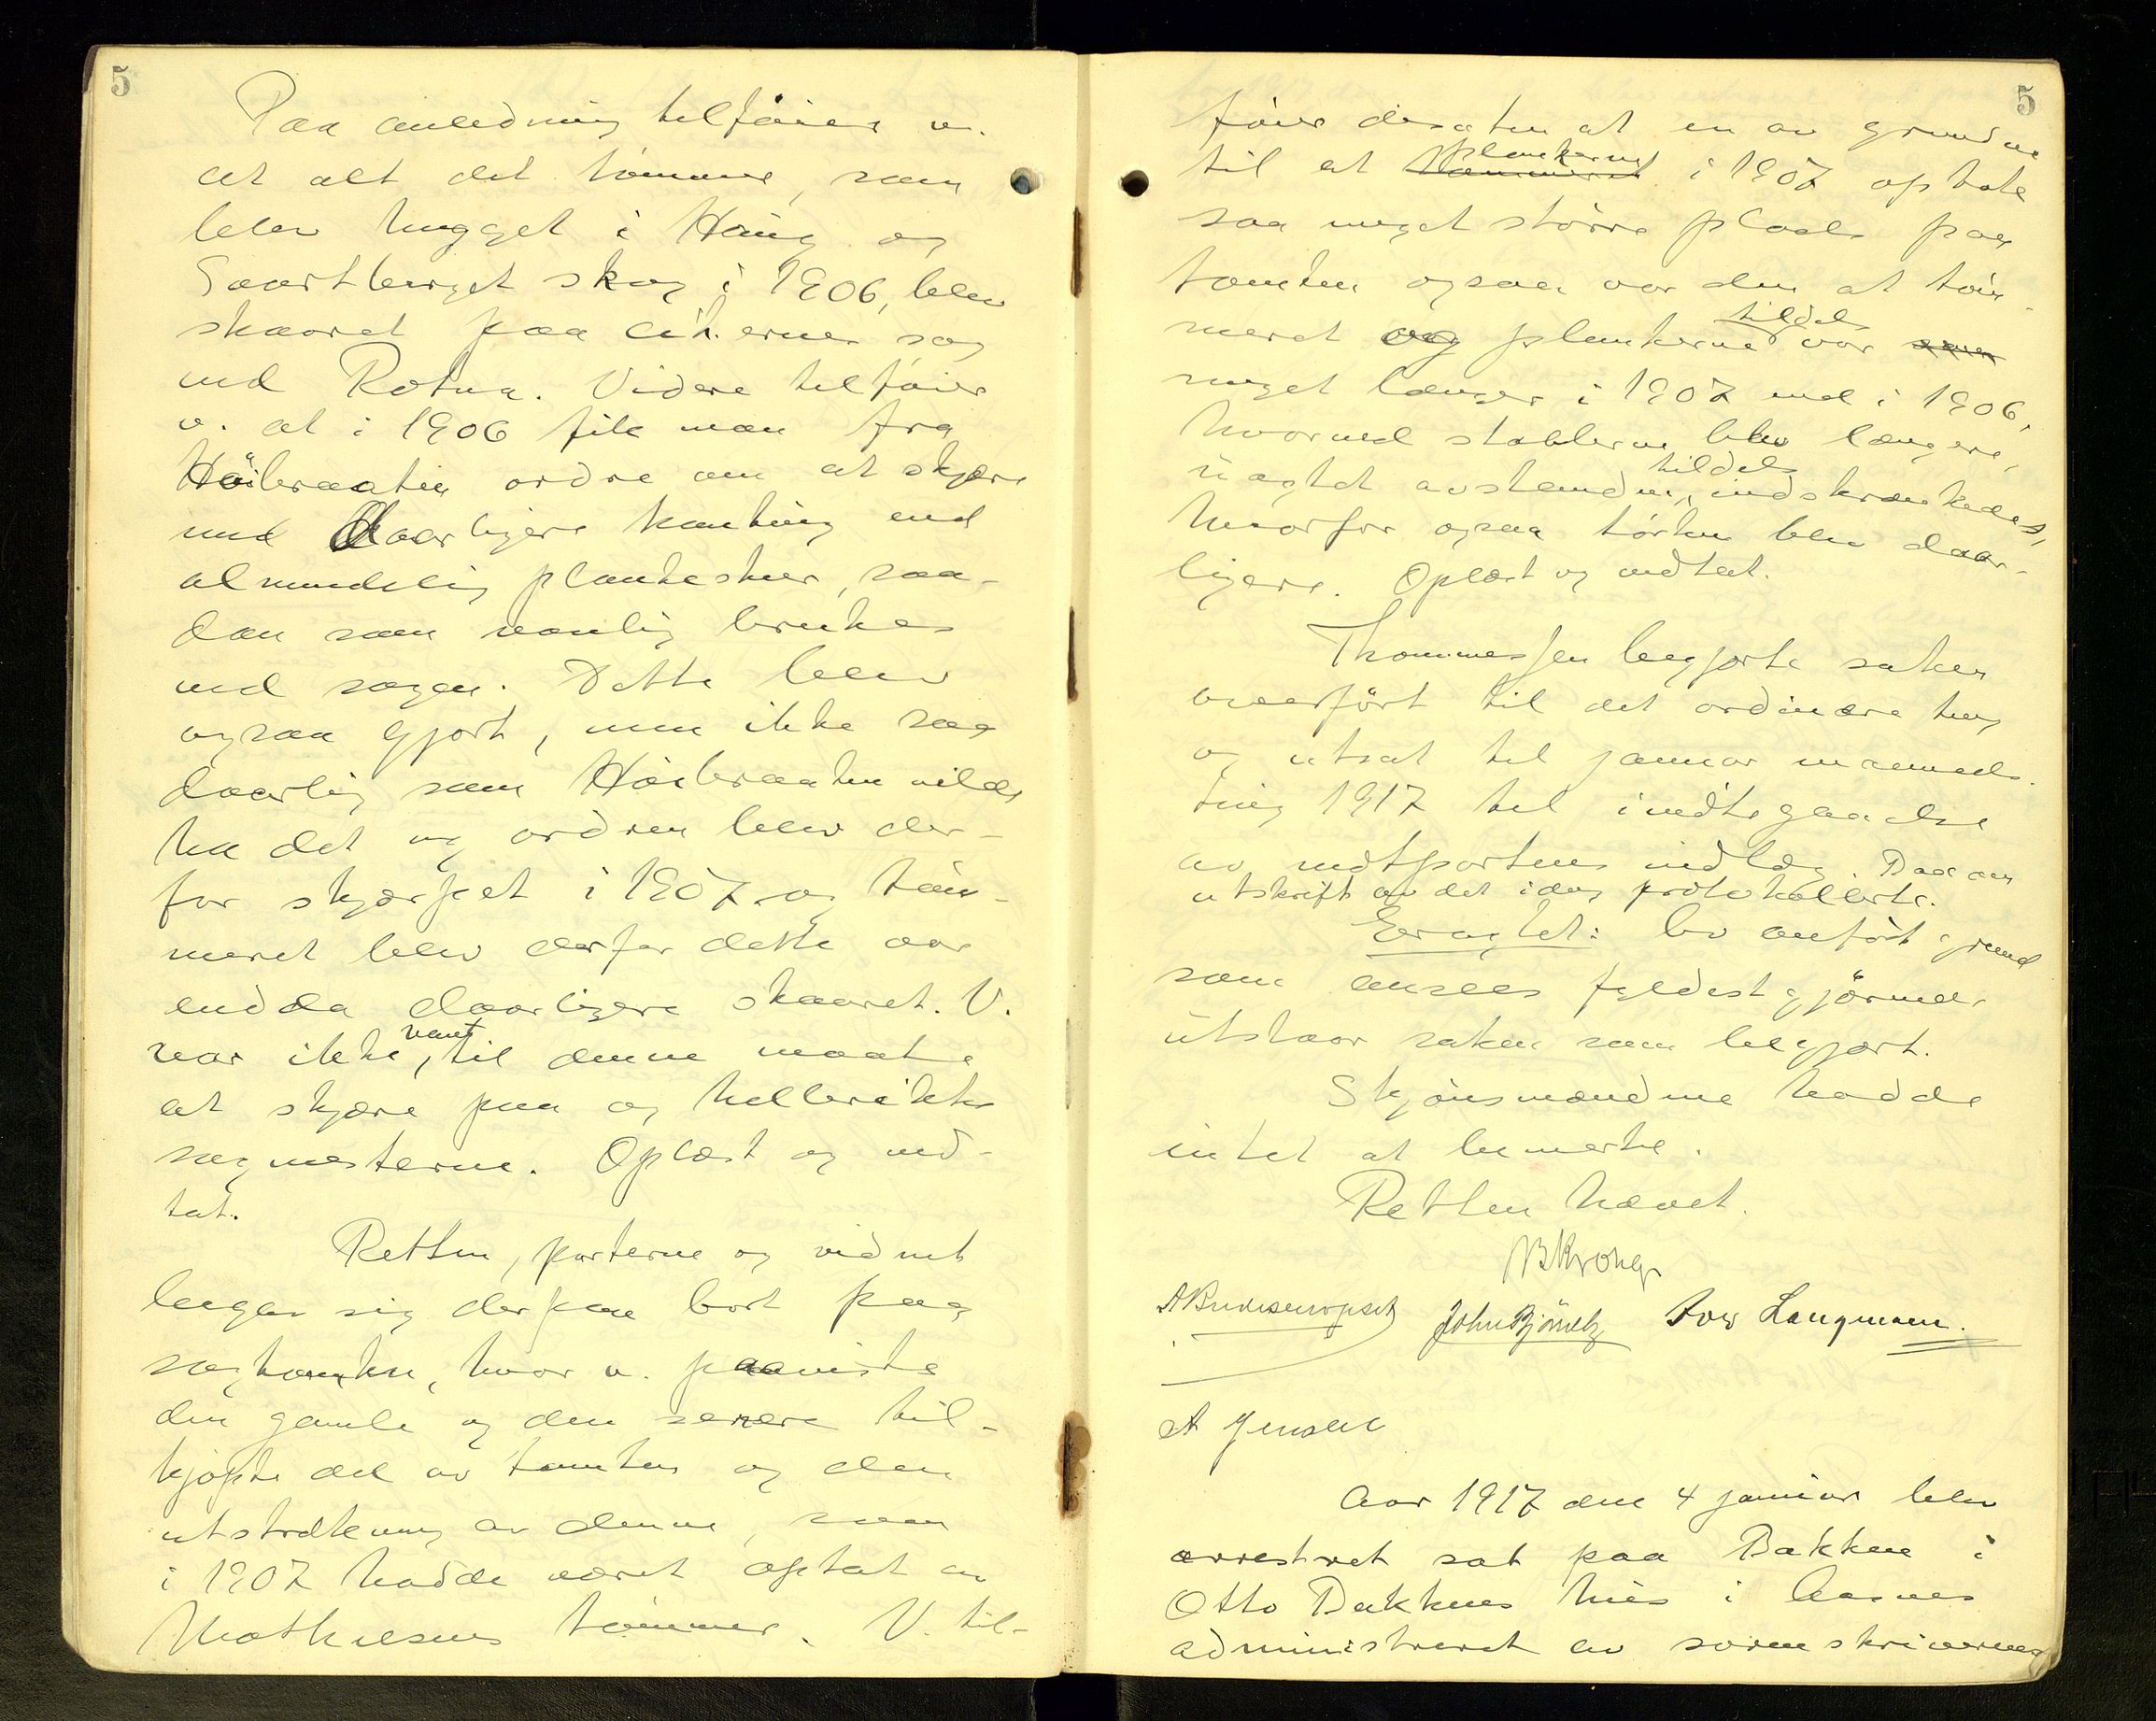 5
Paa anledning tilföier v.
at alt det tömmer, som
blev hugget i Haug og
Svartberget skog i 1906, blev
skaaret paa cit.ernes sag
ved Rotna. Videre tilföier
v. at i 1906 fik man fra
Höibraaten ordre om at skjære
med daarligere kanting end
almindelig plankeskur, saa-
dan som vanlig brukes
ved sagen. Dette blev
ogsaa gjort, men ikke saa
daarlig som Höibraaten vilde
ha det og ordren blev der-
for skjærpet i 1907 og töm-
meret blev derfor dette aar
endda daarligere skaaret. V.
var ikke vant til denne maate
at skjære paa og hellerikke
sagmesterne. Oplæst og ved-
tat.
Retten, parterne og vidnet
begav sig derpaa bort paa
sagtomten, hvor v. paaviste
den gamle og den senere til-
kjöpte del av tomten og den
utstrækning av denne, som
i 1907 hadde været optat av
Mathiesens tömmer. V. til-
5
föier desuten at en av grundene
til at tömmeret plankerne i 1907 optok
saa meget större plads paa
tomten ogsaa var den at töm-
meret og plankerne tildels var
meget længer i 1907 end i 1906,
hvorved stablerne blev længere,
uagtet avstanden tildels indskrænkedes,
hvorfor ogsaa törken blev daar-
ligere. Oplæst og vedtat.
Thommessen begjærte saken
overfört til det ordinære ting
og utsat til januar maaneds-
ting 1917 til imötegaaelse
av motpartens indlæg. Bad om
utskrift av det idag protokollerte.
Eragtet: Av anfört grund
som ansees fyldestgjörende
utstaar saken som begjært.
Skjönsmændene hadde
intet at bemerke.
Retten hævet.
B Krohg
John Björneby Tov Langmoen.
A Jensen
Aar 1917 den 4 januar blev
ekstraret sat paa Bakken i
Otto Bakkens hus i Aasnes
administreret av sorenskriverens